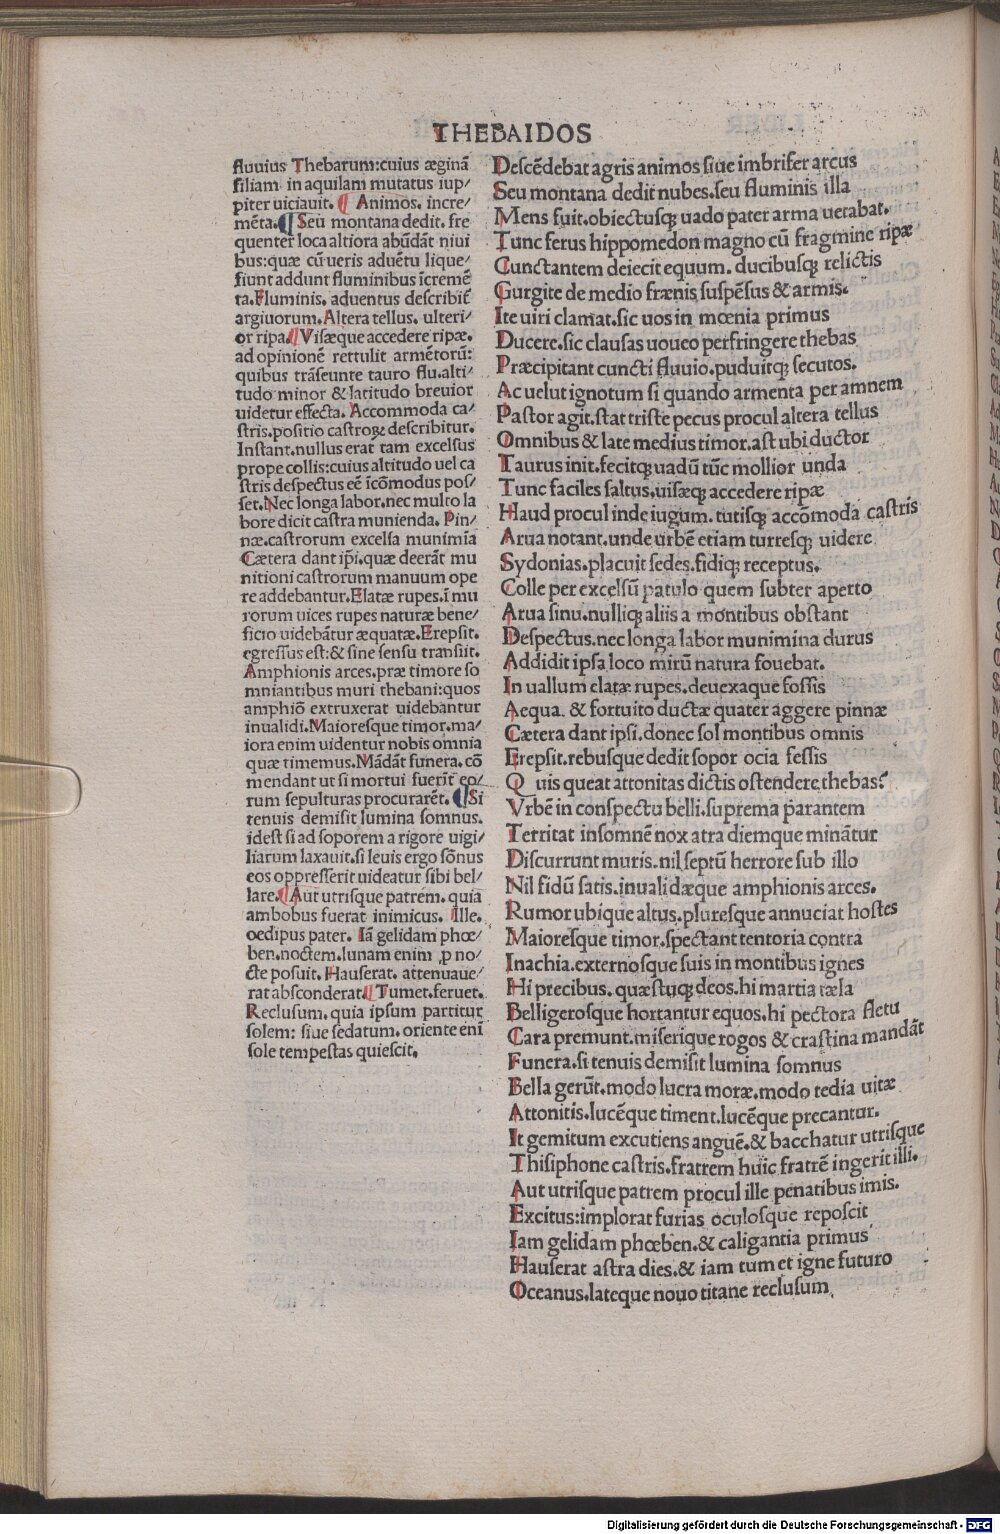 THEBAIDOS
fluuius Thebarum:cuius æginã
filiam in aquilam mutatus iup/
piter uiciauit. ¶ Animos. incre/
mẽta.¶ Seu montana dedit. fre
quenter loca altiora abũdãt niui
bus:quæ cũ ueris aduẽtu lique/
fiunt addunt fluminibus ĩcremẽ
ta.Fluminis. aduentus describit̃
argiuorum.Altera tellus. ulteri/
or ripa.¶ Visæque accedere ripæ.
ad opinionẽ rettulit armẽtorũ:
quibus trãseunte tauro flu.alti/
tudo minor & latitudo breuior
uidetur effecta. Accommoda ca/
stris.positio castroꝝ describitur.
Instant.nullus erat tam excelsus
prope collis:cuius altitudo uel ca
stris despectus eẽ ĩcõmodus pos/
set.Nec longa labor.nec multo la
bore dicit castra munienda. Pin/
næ.castrorum excelsa munimĩa
Cætera dant ip̃i.quæ deerãt mu
nitioni castrorum manuum ope
re addebantur.Elatæ rupes.ĩ mu
rorum uices rupes naturæ bene/
ficio uidebãtur æquatæ.Erepsit.
egressus est:& sine sensu transiit.
Amphionis arces.præ timore so
mniantibus muri thebani:quos
amphiõ extruxerat uidebantur
inualidi.Maioresque timor.ma/
iora enim uidentur nobis omnia
quæ timemus.Mãdãt funera.cõ
mendant ut si mortui fuerĩt eo/
rum sepulturas procurarẽt.¶ Si
tenuis demisit lumina somnus.
idest si ad soporem a rigore uigi/
liarum laxauit.si leuis ergo sõnus
eos oppresserit uideatur sibi bel/
lare.¶ Aut utrisque patrem. quia
ambobus fuerat inimicus. Ille.
oedipus pater. Iã gelidam phœ/
ben.noctem.lunam enim ꝓ no/
cte posuit. Hauserat. attenuaue/
rat absconderat.¶ Tumet.feruet.
Reclusum. quia ipsum partitur
solem: siue sedatum. oriente enĩ
sole tempestas quiescit.
Descẽdebat agris animos siue imbrifer arcus
Seu montana dedit nubes.seu fluminis illa
Mens fuit.obiectusqꝫ uado pater arma uetabat.
Tunc ferus hippomedon magno cũ fragmine ripæ
Cunctantem deiecit equum. ducibusqꝫ relictis
Gurgite de medio frænis suspẽsus & armis.
Ite uiri clamat.sic uos in mœnia primus
Ducere.sic clausas uoueo perfringere thebas
Præcipitant cuncti fluuio.puduitqꝫ secutos.
Ac uelut ignotum si quando armenta per amnem
Pastor agit.stat triste pecus procul altera tellus
Omnibus & late medius timor.ast ubi ductor
Taurus init.fecitqꝫ uadũ tũc mollior unda
Tunc faciles saltus.uisæqꝫ accedere ripæ
Haud procul inde iugum. tutisqꝫ accõmoda castris
Arua notant.unde urbẽ etiam turresqꝫ uidere
Sydonias.placuit sedes.fidiqꝫ receptus.
Colle per excelsũ patulo quem subter aperto
Arua sinu.nulliqꝫ aliis a montibus obstant
Despectus.nec longa labor munimina durus
Addidit ipsa loco mirũ natura fouebat.
In uallum elatæ rupes.deuexaque fossis
Aequa. & fortuito ductæ quater aggere pinnæ
Cætera dant ipsi.donec sol montibus omnis
Erepsit.rebusque dedit sopor ocia fessis
Q uis queat attonitas dictis ostendere thebas?
Vrbẽ in conspectu belli.suprema parantem
Territat insomnẽ nox atra diemque minãtur
Discurrunt muris.nil septũ herrore sub illo
Nil fidũ satis.inualidæque amphionis arces.
Rumor ubique altus.pluresque annuciat hostes
Maioresque timor.spectant tentoria contra
Inachia.externosque suis in montibus ignes
Hi precibus. quæstuqꝫ deos.hi martia tæla
Belligerosque hortantur equos.hi pectora fletu
Cara premunt.miserique rogos & crastina mandãt
Funera.si tenuis demisit lumina somnus
Bella gerũt.modo lucra moræ.modo tedia uitæ
Attonitis.lucẽque timent.lucẽque precantur.
It gemitum excutiens anguẽ.& bacchatur utrisque
Thisiphone castris.fratrem huic fratrẽ ingerit illi.
Aut utrisque patrem procul ille penatibus imis.
Excitus:implorat furias oculosque reposcit
Iam gelidam phœben.& caligantia primus
Hauserat astra dies.& iam tum et igne futuro
Oceanus.lateque nouo titane reclusum
Digitalisierung gefördert durch die Deutsche Forschungsgemeinschaft - DFG